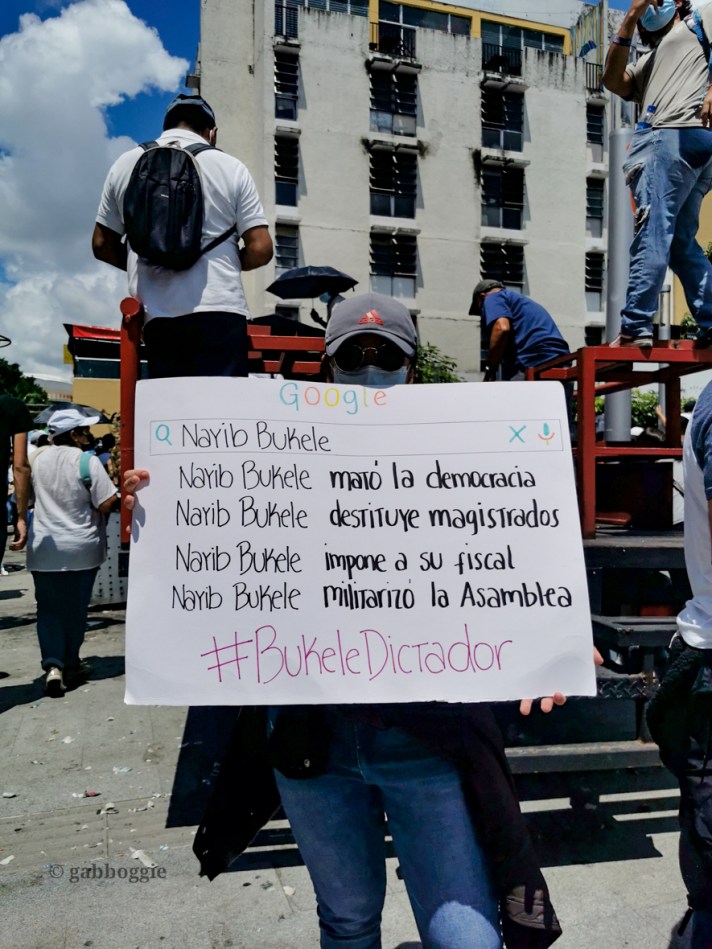 Google
Nayib Bukele
Nayib Bukele mató la democracia
Nayib Bukele destituye magistrados
Nayib Bukele impone a su fiscal
Nayib Bukele militarizó la Asamblea
#BukeleDictador
© gabboggie